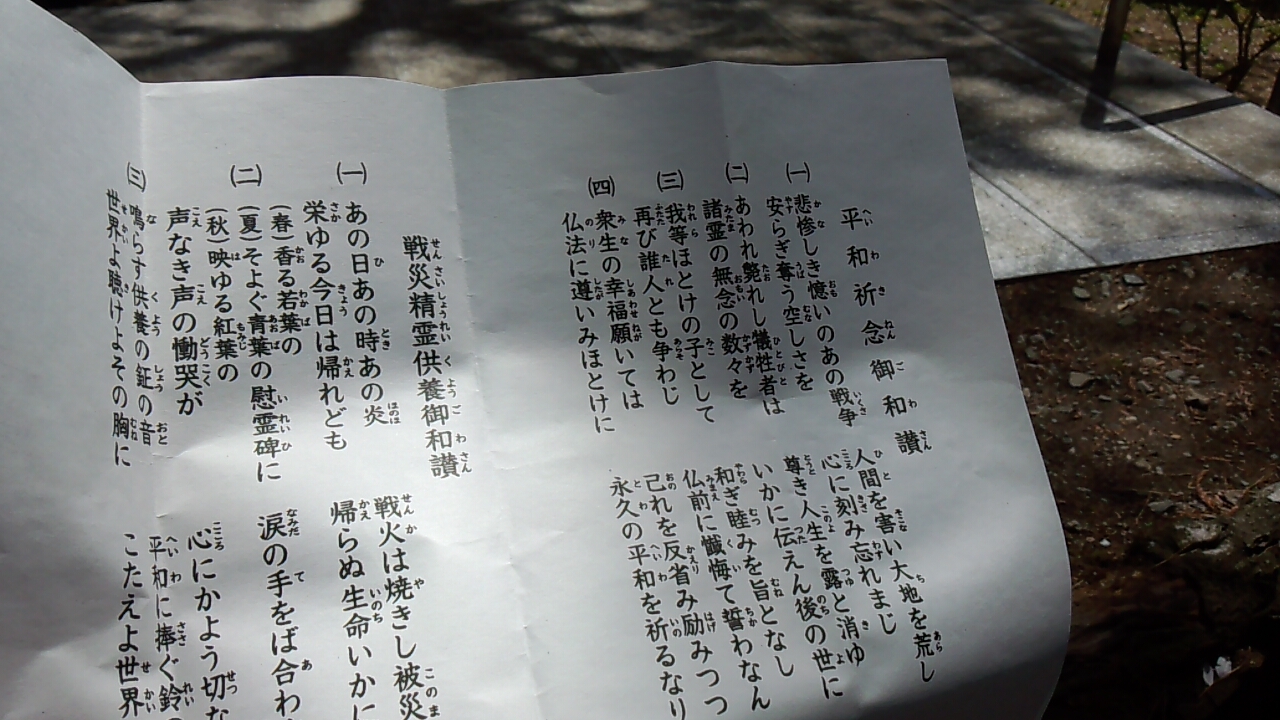 平和祈念御和讃
㈠ 悲惨しき憶いのあの戦争 人間を害い大地を荒し
安らぎ奪う空しさを 心に刻み忘れまじ
㈡ あわれ斃れし犠牲者は 尊き人生を露と消ゆ
諸霊の無念の数々を いかに伝えん後の世に
㈢ 我等ほとけの子として 和ぎ睦みを旨となし
再び誰人とも争わじ 仏前に懺悔て誓わなん
㈣ 衆生の幸福願いては 己れを反省み励みつつ
仏法に遵いみほとけに 永久の平和を祈るなり
戦災精霊供養御和讃
㈠ あの日あの時あの炎 戦火は焼きし被災
栄ゆる今日は帰れども 帰らぬ生命いかに
㈡ (春)香る若葉の
(夏)そよぐ青葉の慰霊碑に 涙の手をば合わ
(秋)映ゆる紅葉の
声なき声の慟哭が 心にかよう切な
㈢ 鳴らす供養の鉦の音 平和に捧ぐ鈴の
世界よ聴けよその胸に こたえよ世界